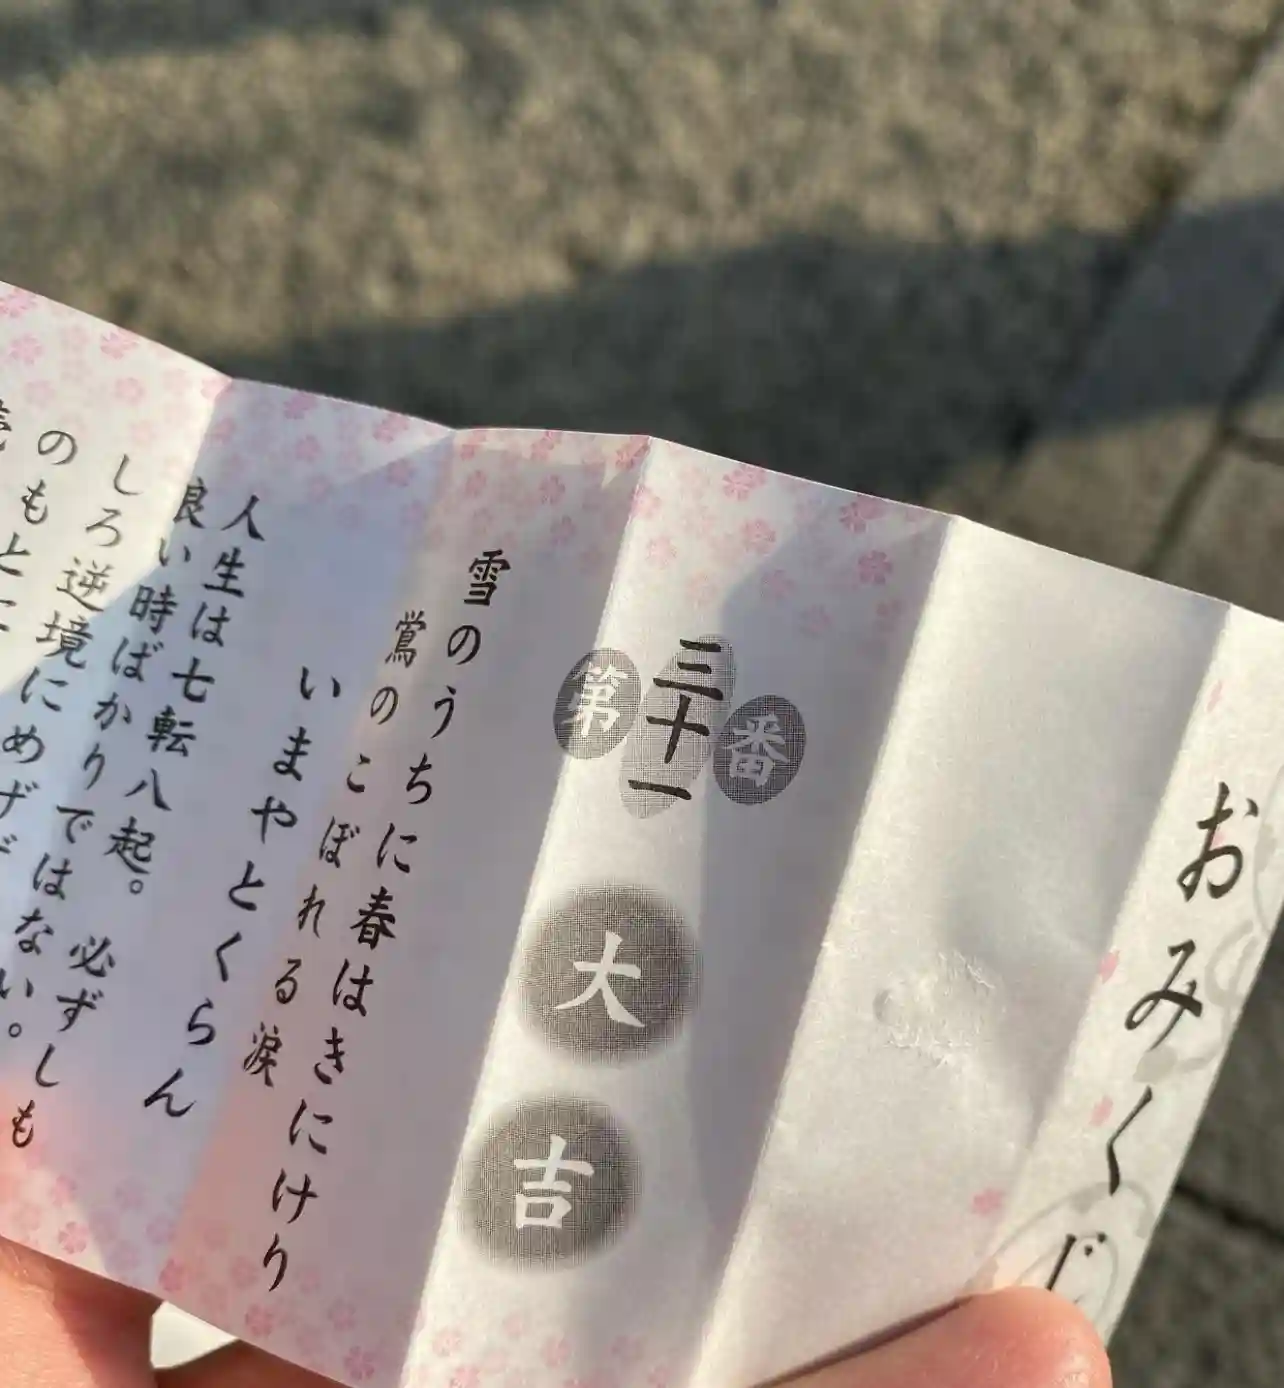 おみくじ
第三十一番
大吉
雪のうちに春はきにけり
鶯のこぼれる涙
いまやとくらん
人生は七転八起。必ずしも
良い時ばかりではない。
しろ逆境にめげ
のもとに